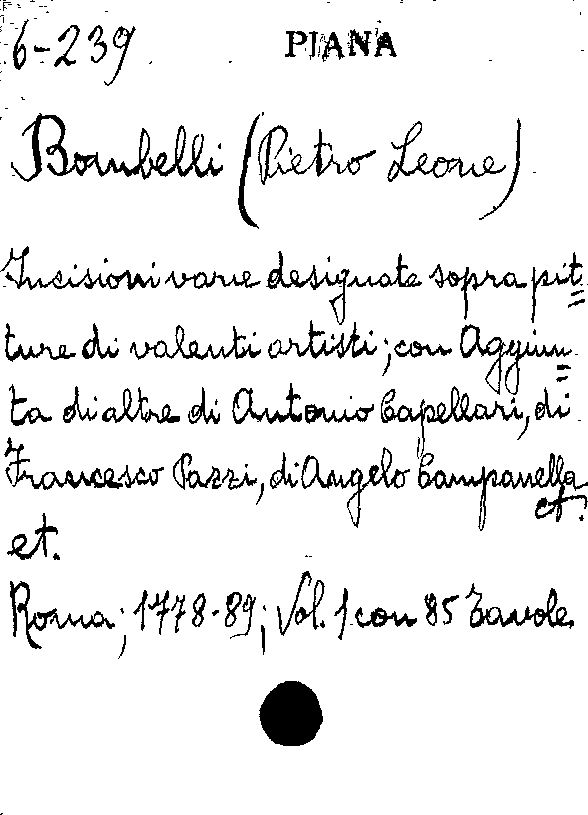 6-239 PIANA
Bombelli (Pietro Leone)
Incisioni varie designate sopra pit=
ture di valenti artisti; con Aggiun=
ta di altre di Antonio Capellari, di
Francesco Pazzi, di Angelo Campanella
et.
et.
Roma; 1778-89; Vol. 1 con 85 Tavole